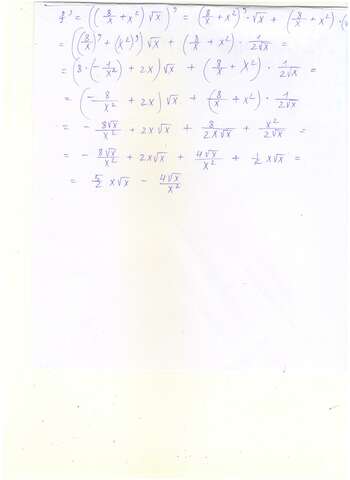 y' = ((8/x + x²) √x)' = (8/x + x²)' · √x + (8/x + x²) · (√
= ((8/x)' + (x²)') √x + (8/x + x²) · 1/(2√x) =
= (8 · (-1/x²) + 2x) √x + (8/x + x²) · 1/(2√x) =
= (-8/x² + 2x) √x + (8/x + x²) · 1/(2√x)
= - 8√x/x² + 2x√x + 8/(2x√x) + x²/(2√x)
= - 8√x/x² + 2x√x + 4√x/x² + 1/2 x√x =
= 5/2 x√x - 4√x/x²